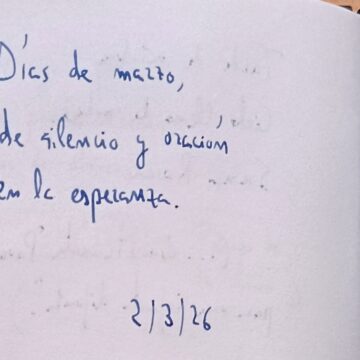 Días de marzo,
de silencio y oración
en la esperanza.
2/3/26